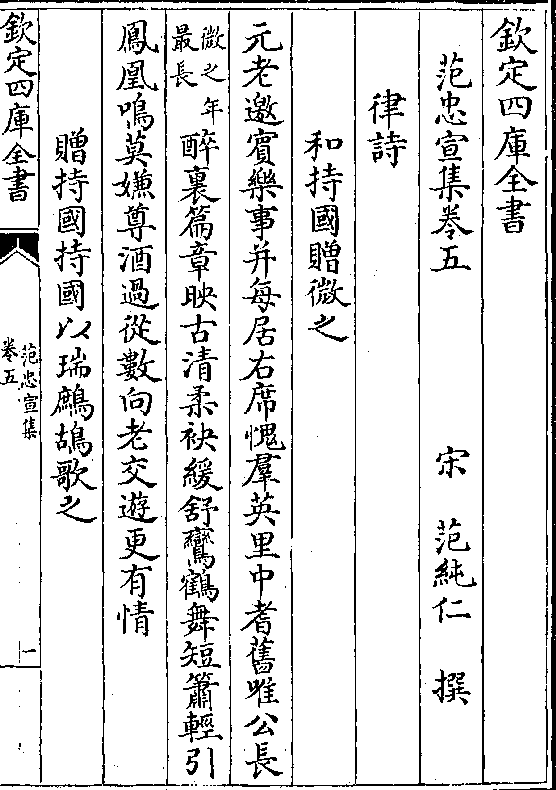 欽定四庫全書
范忠宣集卷五
宋 范純仁 撰
律詩
和持國贈微之
元老邀賓樂事并每居右席愧羣英里中耆舊唯公長
微之年
最長
醉裏篇章映古清柔袂緩舒鸞鶴舞短簫輕引
鳳凰鳴莫嫌尊酒過從數向老交遊更有情
贈持國持國以瑞鷓鴣歌之
欽定四庫全書
范忠宣集
卷五
一